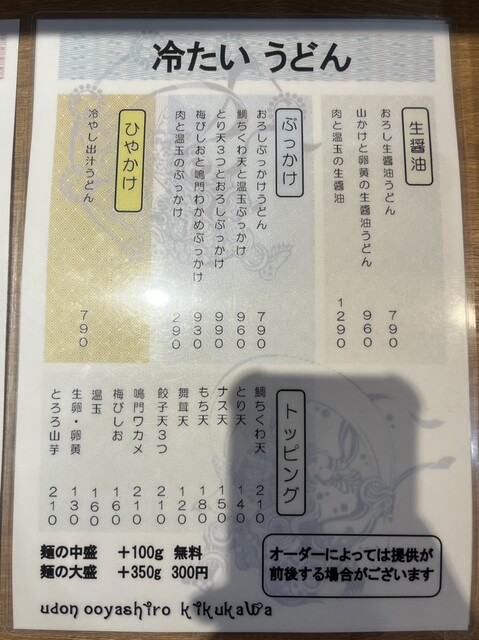 冷たい うどん
生醤油
おろし生醤油うどん 790
山かけと卵黄の生醤油うどん 960
肉と温玉の生醤油 1290
ぶっかけ
おろしぶっかけうどん 790
鯛ちくわ天と温玉ぶっかけ 960
とり天3つとおろしぶっかけ 990
梅びしおと鳴門わかめぶっかけ 930
肉と温玉のぶっかけ 1290
ひやかけ
冷やし出汁うどん 790
トッピング
鯛ちくわ天 210
とり天 140
ナス天 150
もち天 180
舞茸天 120
餃子天3つ 210
鳴門ワカメ 210
梅びしお 160
温玉 160
生卵・卵黄 130
とろろ山芋 210
麺の中盛 +100g 無料
麺の大盛 +350g 300円
オーダーによっては提供が
前後する場合がございます
udon ooyashiro kikukawa